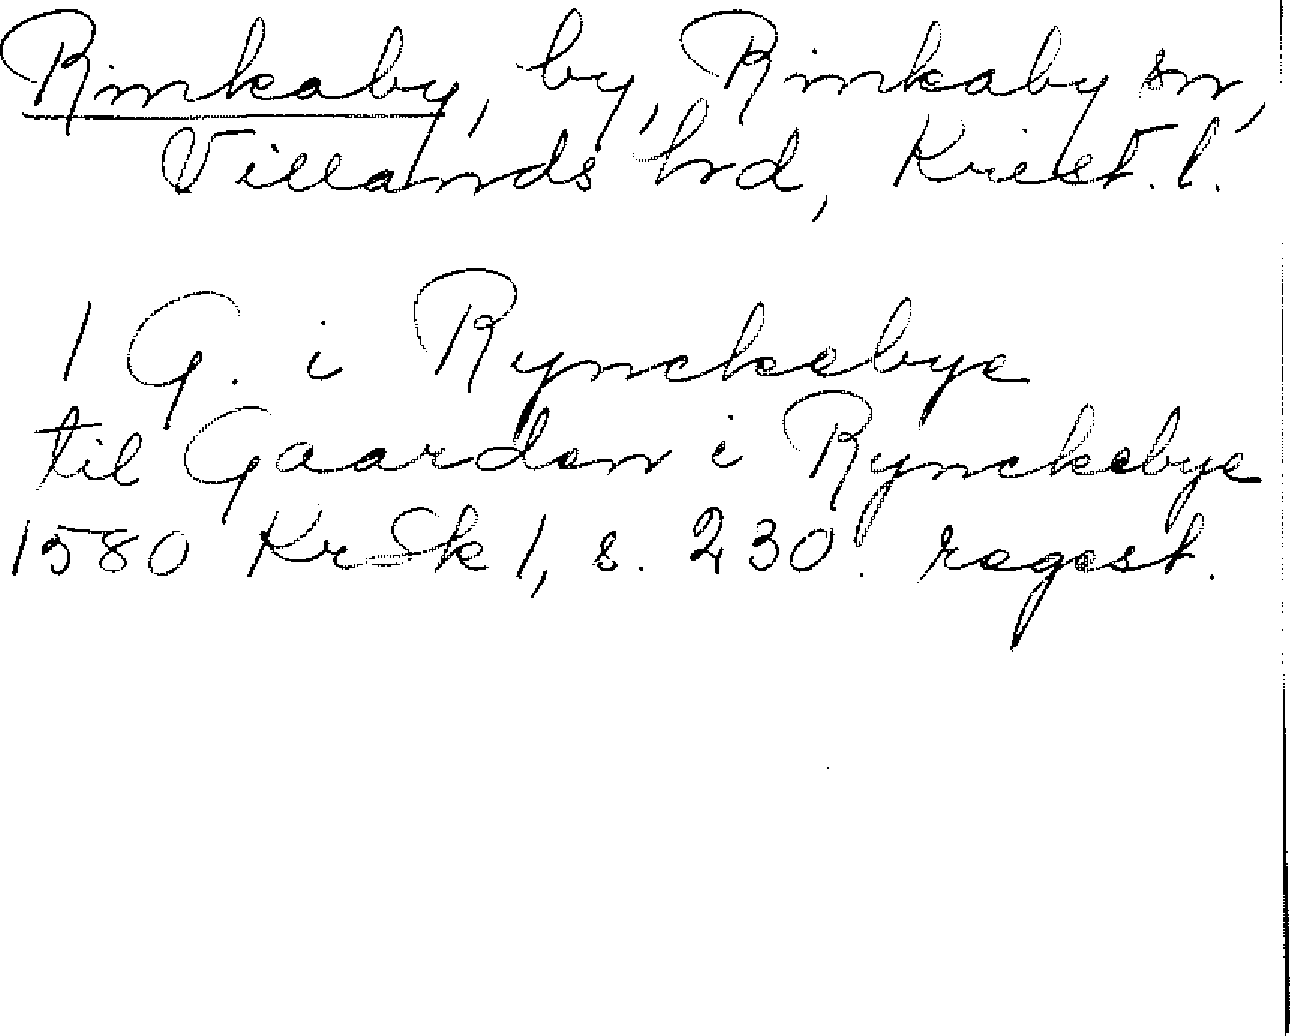 Rinkaby, by, Rinkaby sn,
Villands hrd, Krist. l.
1 G. i Rynckebye
til Gaarden i Rynckebye
1580 KrSk 1, s. 230. regest.